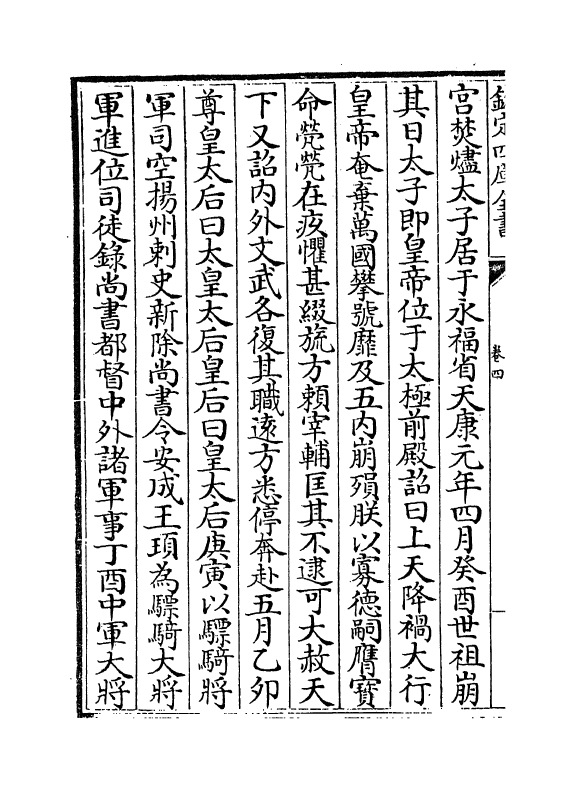 欽定四庫全書
卷四
宫焚燼太子居于永福省天康元年四月癸酉世祖崩
其日太子即皇帝位于太極前殿詔曰上天降禍大行
皇帝奄棄萬國攀號靡及五内崩殞朕以寡德嗣膺寳
命煢煢在疚懼甚綴旒方頼宰輔匡其不逮可大赦天
下又詔内外文武各復其職逺方悉停奔赴五月乙卯
尊皇太后曰太皇太后皇后曰皇太后庚寅以驃騎將
軍司空揚州刺史新除尚書令安成王頊為驃騎大將
軍進位司徒錄尚書都督中外諸軍事丁酉中軍大將